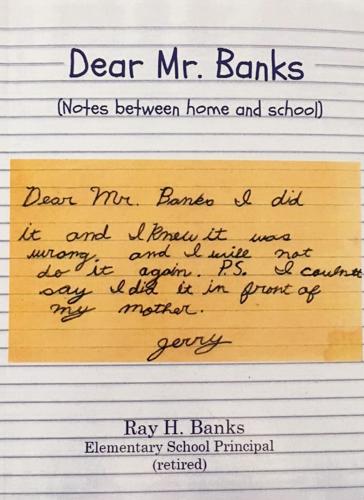 Dear Mr. Banks
(Notes between home and school)
Dear Mr. Banks I did
it and I knew it was
wrong. and I will not
do it again. P.S. I couldn't
say I did it in front of
my mother.
jerry
Ray H. Banks
Elementary School Principal
(retired)